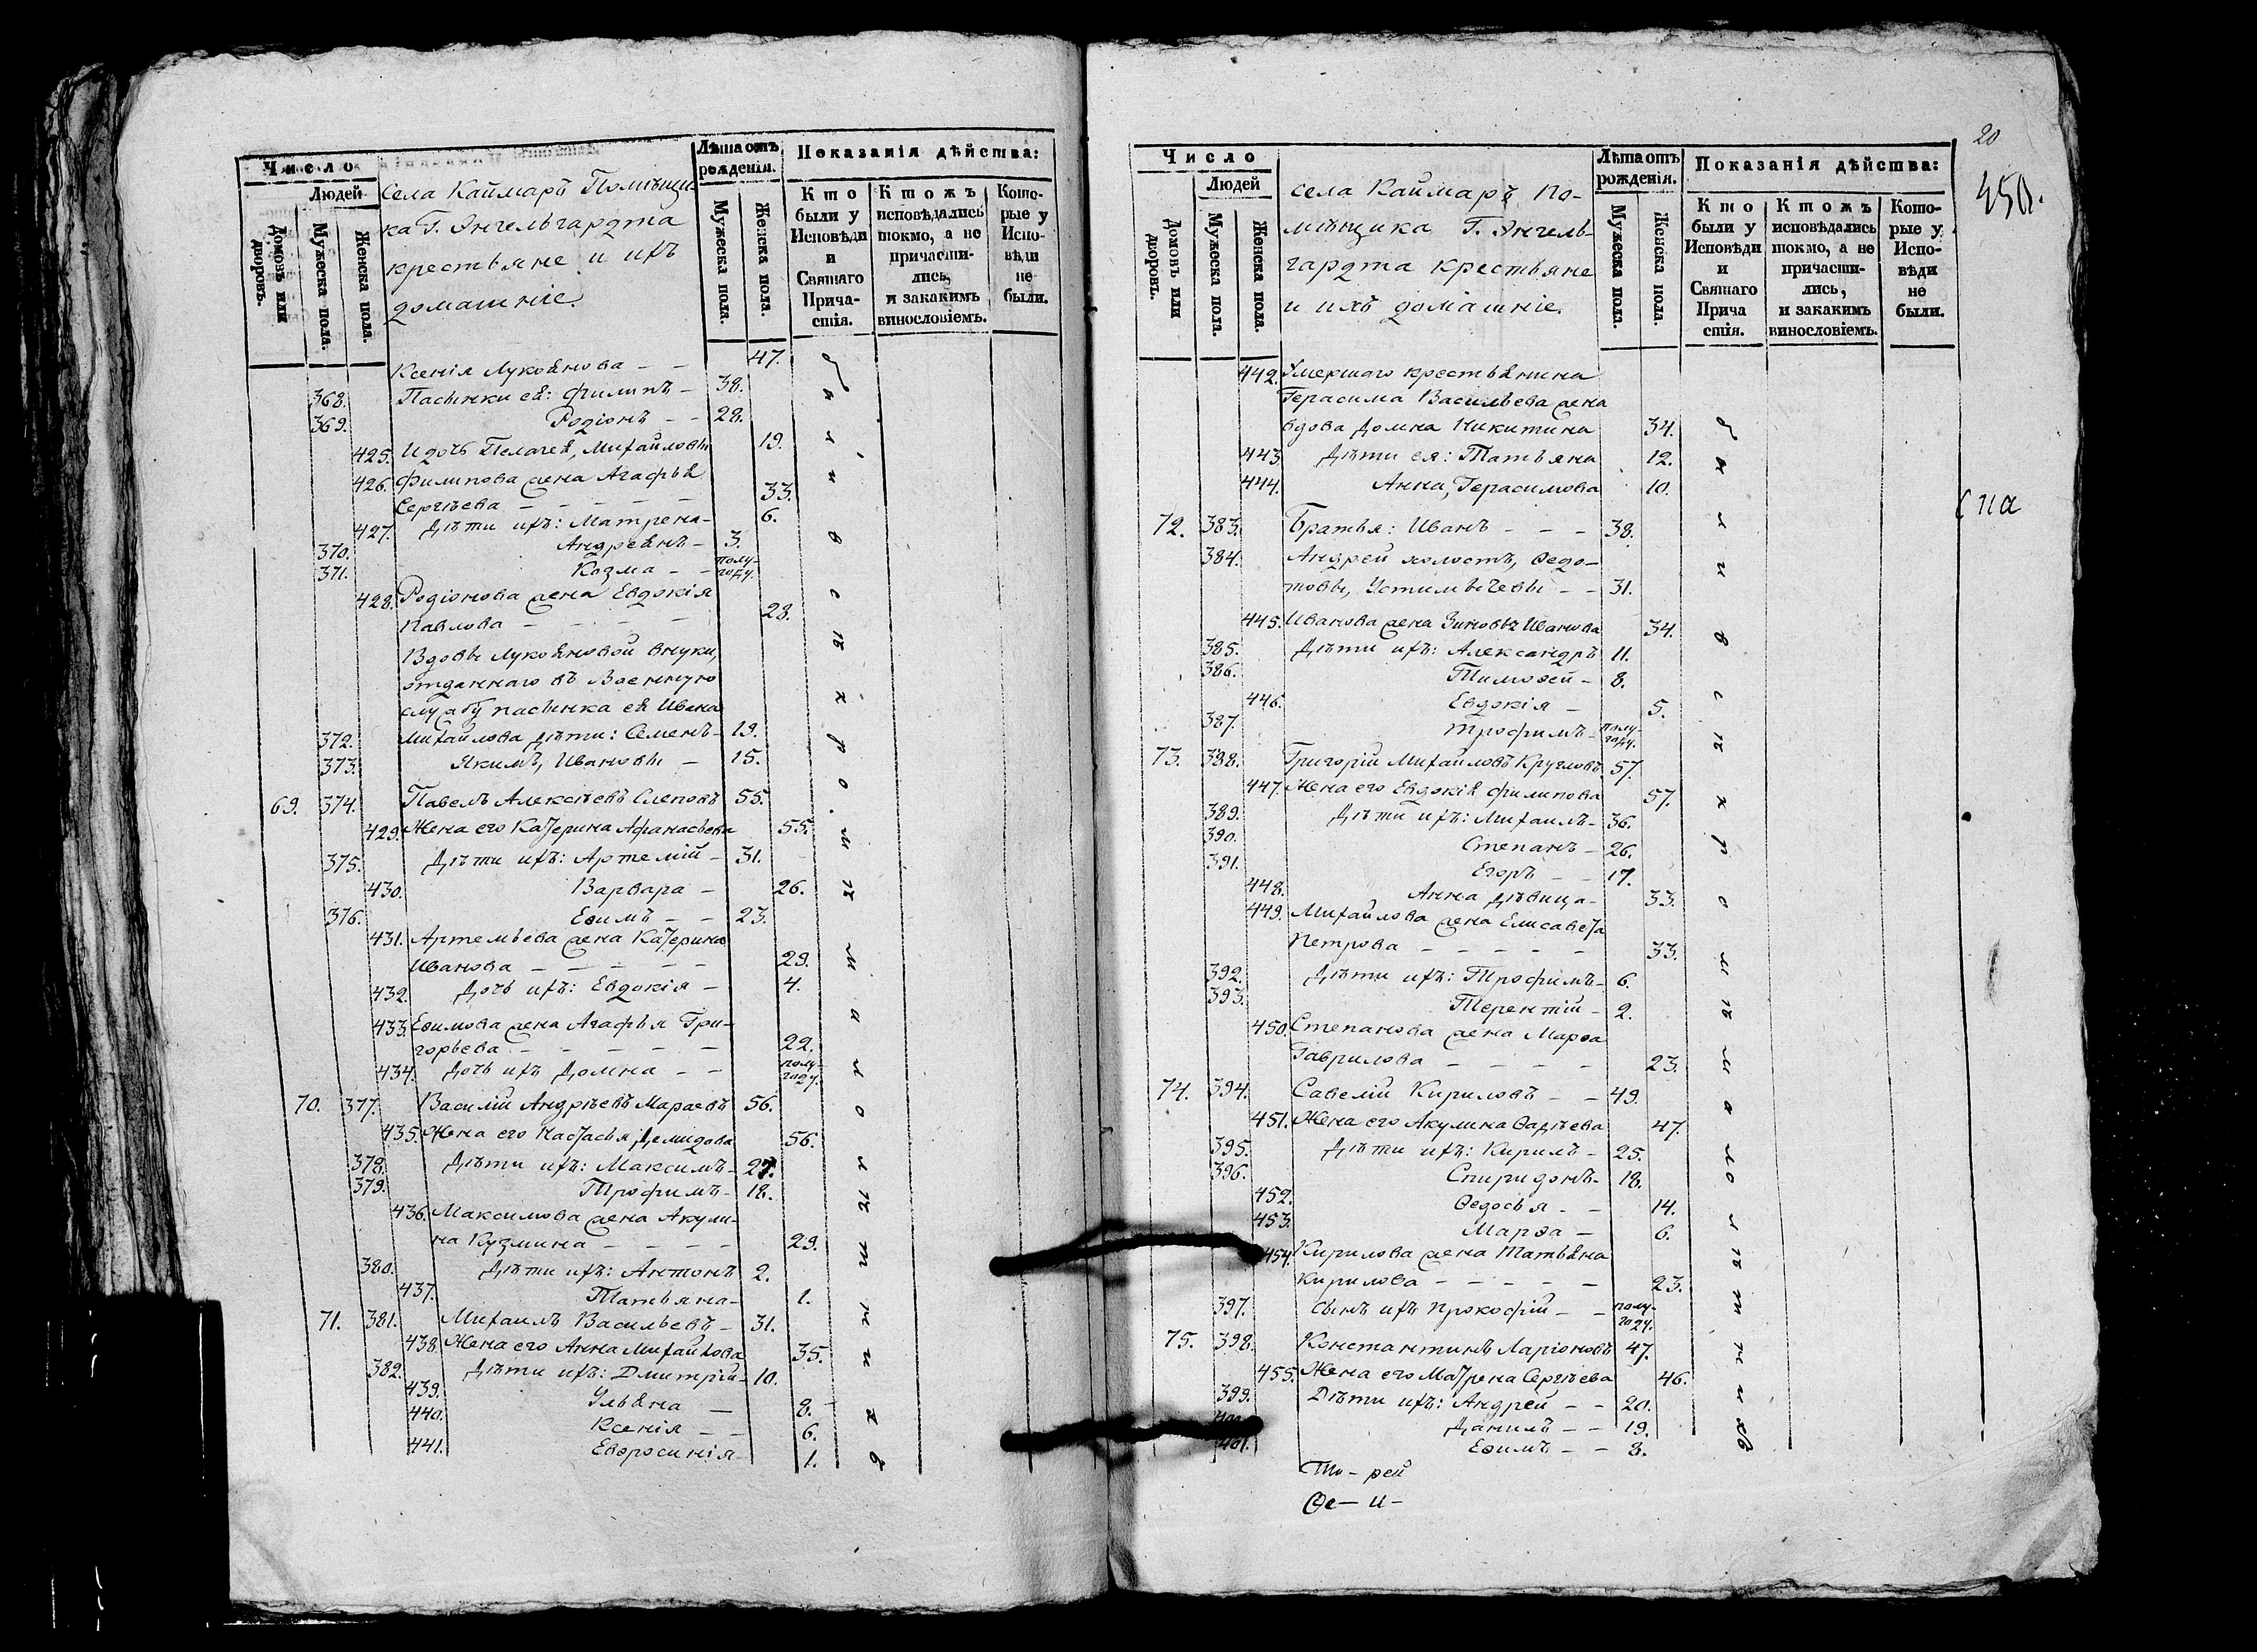 Число
Людей
Домовъ или дворовъ.
Мужеска пола.
Женска пола.
Села Каймаръ Помѣщи-
ка Г. Энгельгардта
крестьяне и ихъ
домашніе.
Лѣта отъ рожденія.
Мужеска пола.
Женска пола.
Показанія дѣйства:
Кто были у Исповѣди и Святаго Прича-стія.
Ктожъ исповѣдались токмо, а не причасти-лись, и закакимъ винословіемъ.
Кото-рые у Испо-вѣди не были.
Ксенія Лукоянова - - 47.
368. Пасынки ея: Филипъ - 38.
369. Родіонъ - - 28.
425. И дочь Пелагея, Михайловы 19.
426. Филипова жена Агафья
Сергѣева - - - - 33.
427. Дѣти ихъ: Матрена - 6.
370. Андреянъ - 3.
371. Козма - - полу-году.
428. Родіонова жена Евдокія
Павлова - - - - 28.
Вдовы Лукояновой внуки,
отданнаго въ Военную
службу пасынка ея Ивана
372. Михайлова дѣти: Семенъ - 19.
373. Якимъ, Ивановы - 15.
69. 374. Павелъ Алексѣевъ Слеповъ 55.
429. Жена его Катерина Афанасьева 55.
375. Дѣти ихъ: Артемій - 31.
430. Варвара - 26.
376. Еѳимъ - - 23.
431. Артемьева жена Катерина
Иванова - - - - - 29.
432. Дочь ихъ: Евдокія - 4.
433. Еѳимова жена Агафья Гри-
горьева - - - - - 22.
434. Дочь ихъ Домна - - полу-году.
70. 377. Василій Андрѣевъ Мараевъ 56.
435. Жена его Настасья Демидова 56.
378. Дѣти ихъ: Максимъ - 27.
379. Трофимъ - 18.
436. Максимова жена Акули-
на Кузмина - - - - 29.
380. Дѣти ихъ: Антонъ 2.
437. Татьяна - 1.
71. 381. Михаилъ Васильевъ - 31.
438. Жена его Анна Михайлова 35.
382. Дѣти ихъ: Дмитрій - 10.
439. Ульяна - 8.
440. Ксенія - - 6.
441. Евѳросинія - 1.
20
450.
Число
Людей
Домовъ или дворовъ.
Мужеска пола.
Женска пола.
села Каймаръ По-
мѣщика Г. Энгель-
гардта крестьяне
и ихъ домашніе.
Лѣта отъ рожденія.
Мужеска пола.
Женска пола.
Показанія дѣйства:
Кто были у Исповѣди и Святаго Прича стія.
Ктожъ исповѣдались токмо, а не причасти-лись, и закакимъ винословіемъ.
Кото-рые у Испо-вѣди не были.
442. Умершаго крестьянина
Герасима Васильева жена
вдова Домна Никитина 34.
443. Дѣти ея: Татьяна 12.
444. Анна, Герасимова 10.
72. 383. Братья: Иванъ - - - 38.
384. Андрей холостъ, Ѳедо-
товы, Устимычевы - - 31.
445. Иванова жена Зиновья Иванова 34.
385. Дѣти ихъ: Александръ 11.
386. Тимоѳей - 8.
446. Евдокія - 5.
387. Трофимъ - полу-году.
73. 388. Григорій Михайловъ Кругловъ 57.
447. Жена его Евдокія Филипова 57.
389. Дѣти ихъ: Михаилъ - 36.
390. Степанъ - 26.
391. Егоръ - - 17.
448. Анна дѣвица - 33.
449. Михайлова жена Елисавета
Петрова - - - - - 33.
392. Дѣти ихъ: Трофимъ - 6.
393. Терентій - 2.
450. Степанова жена Марѳа
Гаврилова - - - - 23.
74. 394. Савелій Кириловъ - - 49.
451. Жена его Акулина Ѳадѣева 47.
395. Дѣти ихъ: Кирилъ - 25.
396. Спиридонъ - 18.
452. Ѳедосья - - 14.
453. Марѳа - 6.
454. Кирилова жена Татьяна
Кирилова - - - - - 23.
397. сынъ ихъ Прокофій - - полу-году.
75. 398. Константинъ Ларіоновъ 47.
455. Жена его Матрена Сергѣева 46.
399. Дѣти ихъ: Андрей - - 20.
400. Данилъ - - 19.
401. Еѳимъ - - 8.